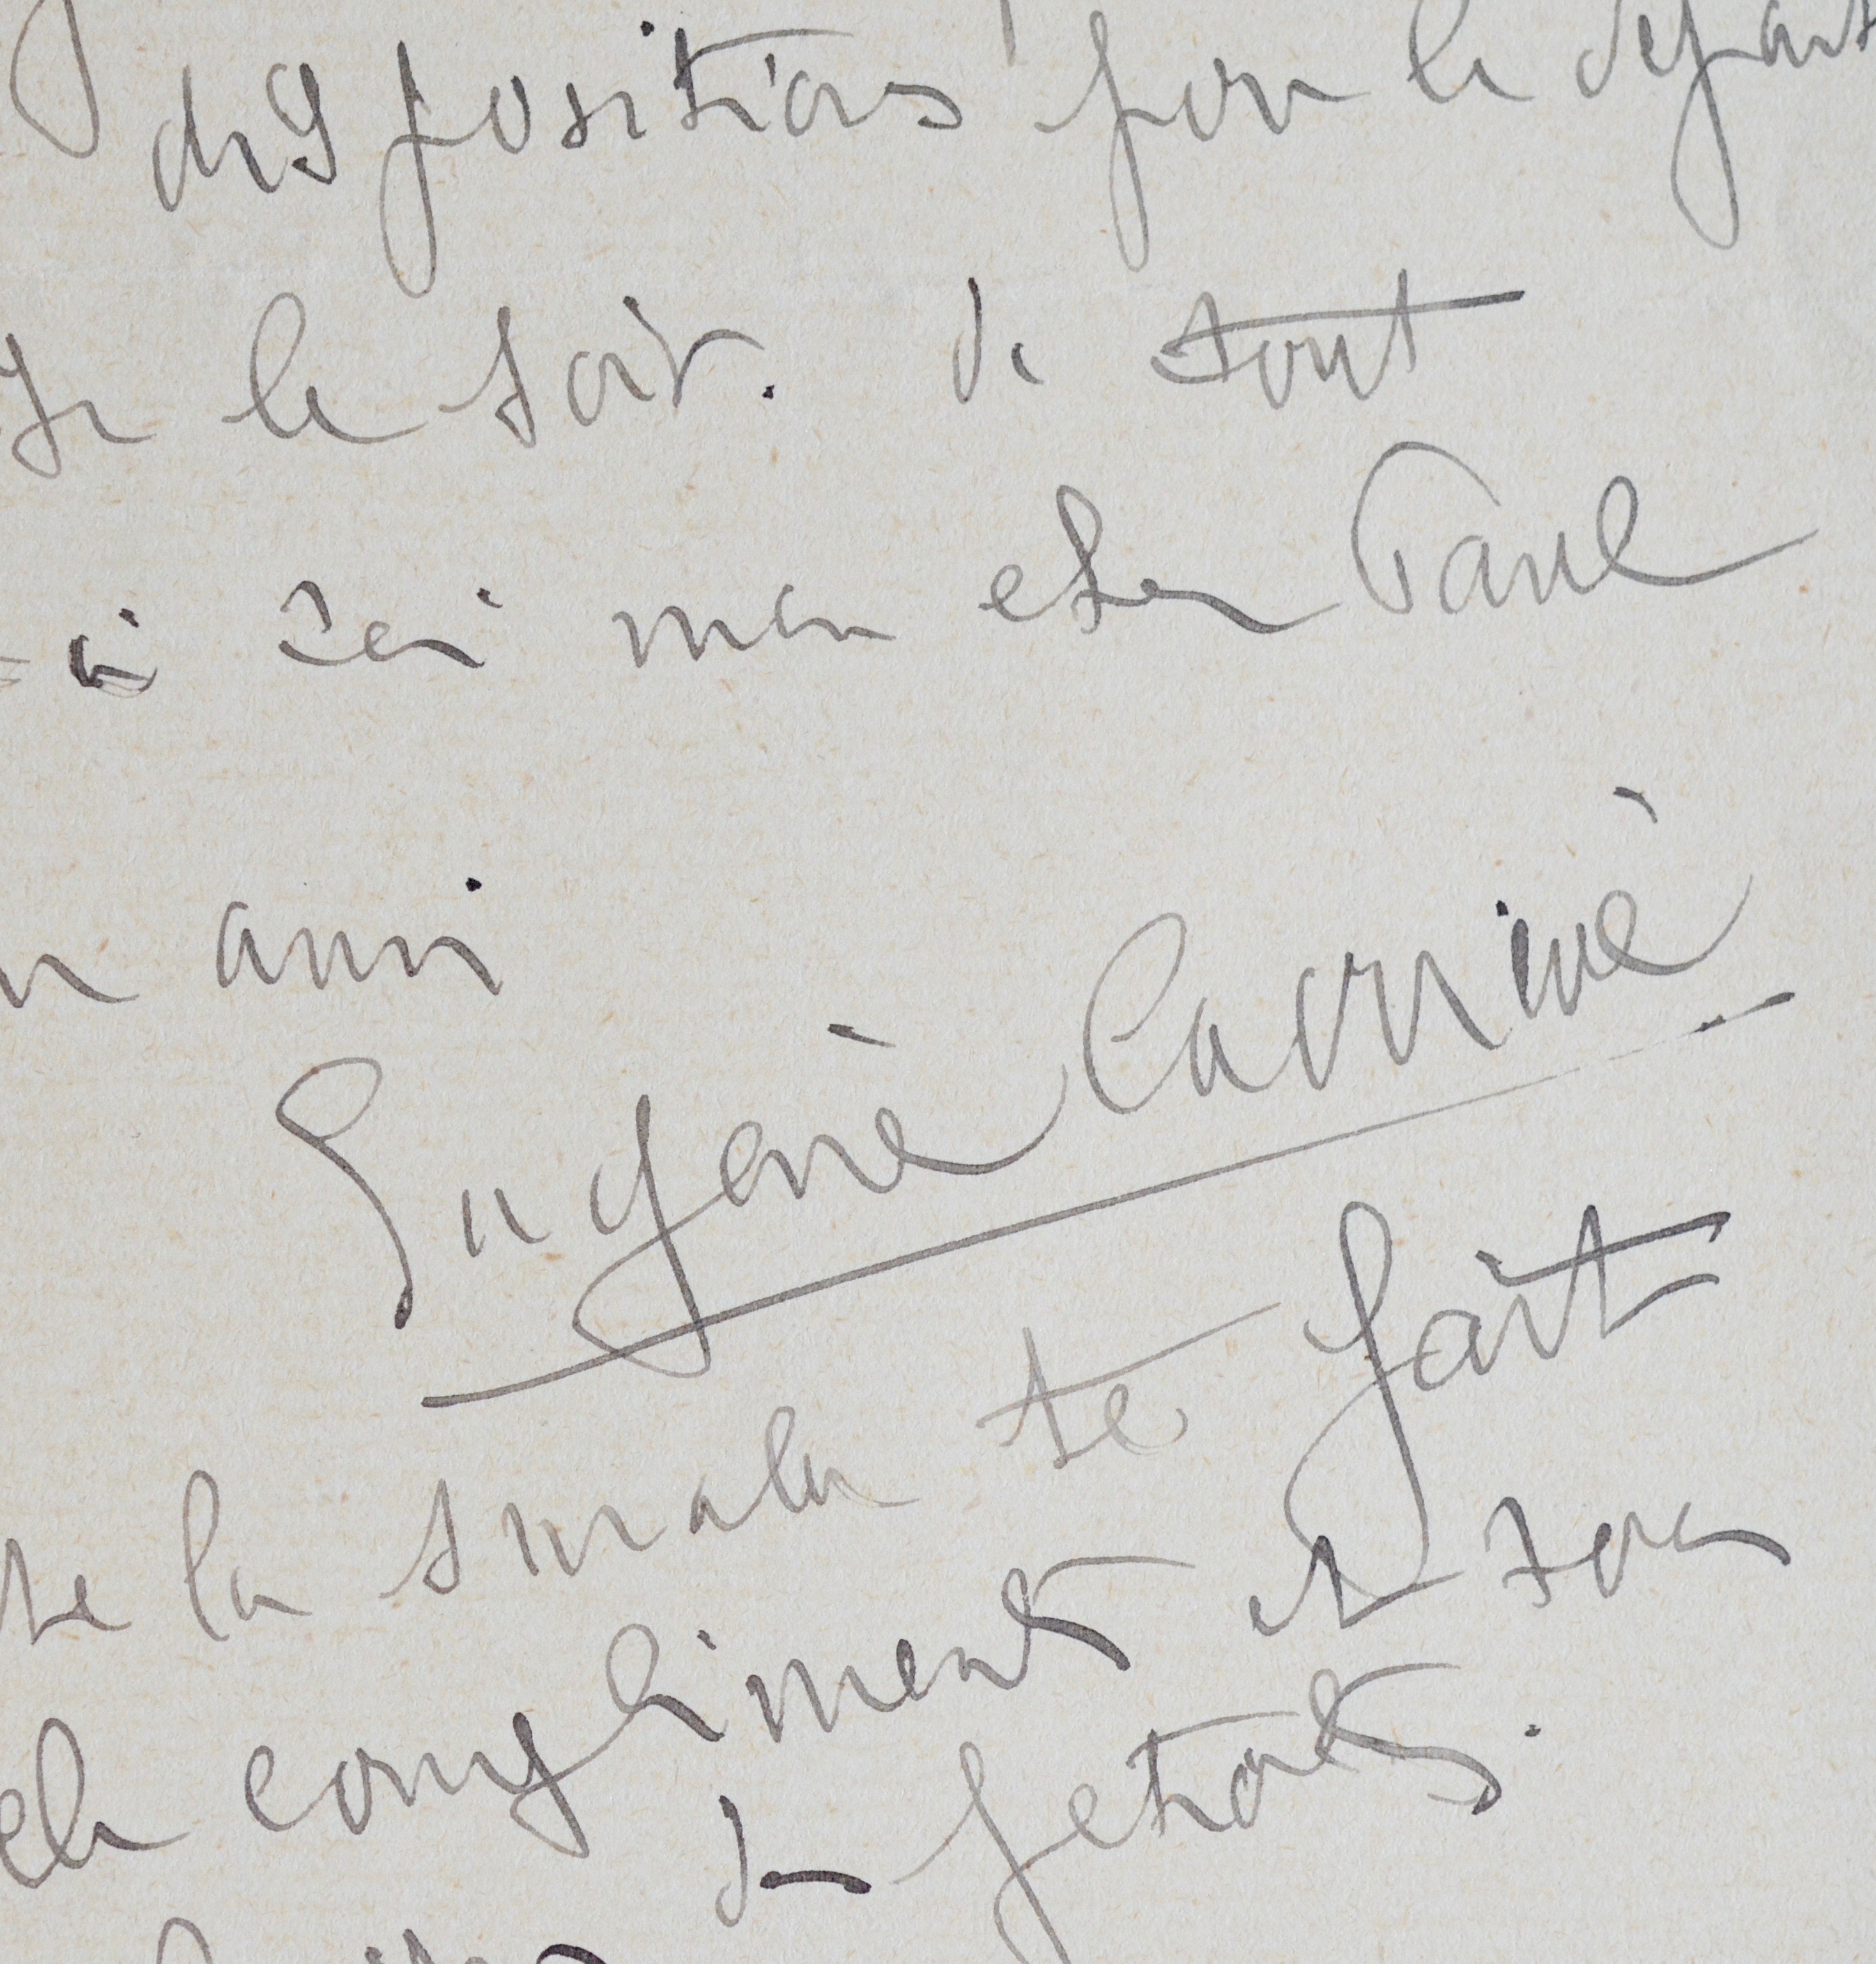 dispositions pour le départ
le soir. de tout
à toi mon cher Paul
ami
Eugène Carrière
te la smala te fait
compliments et ton
de petiots.